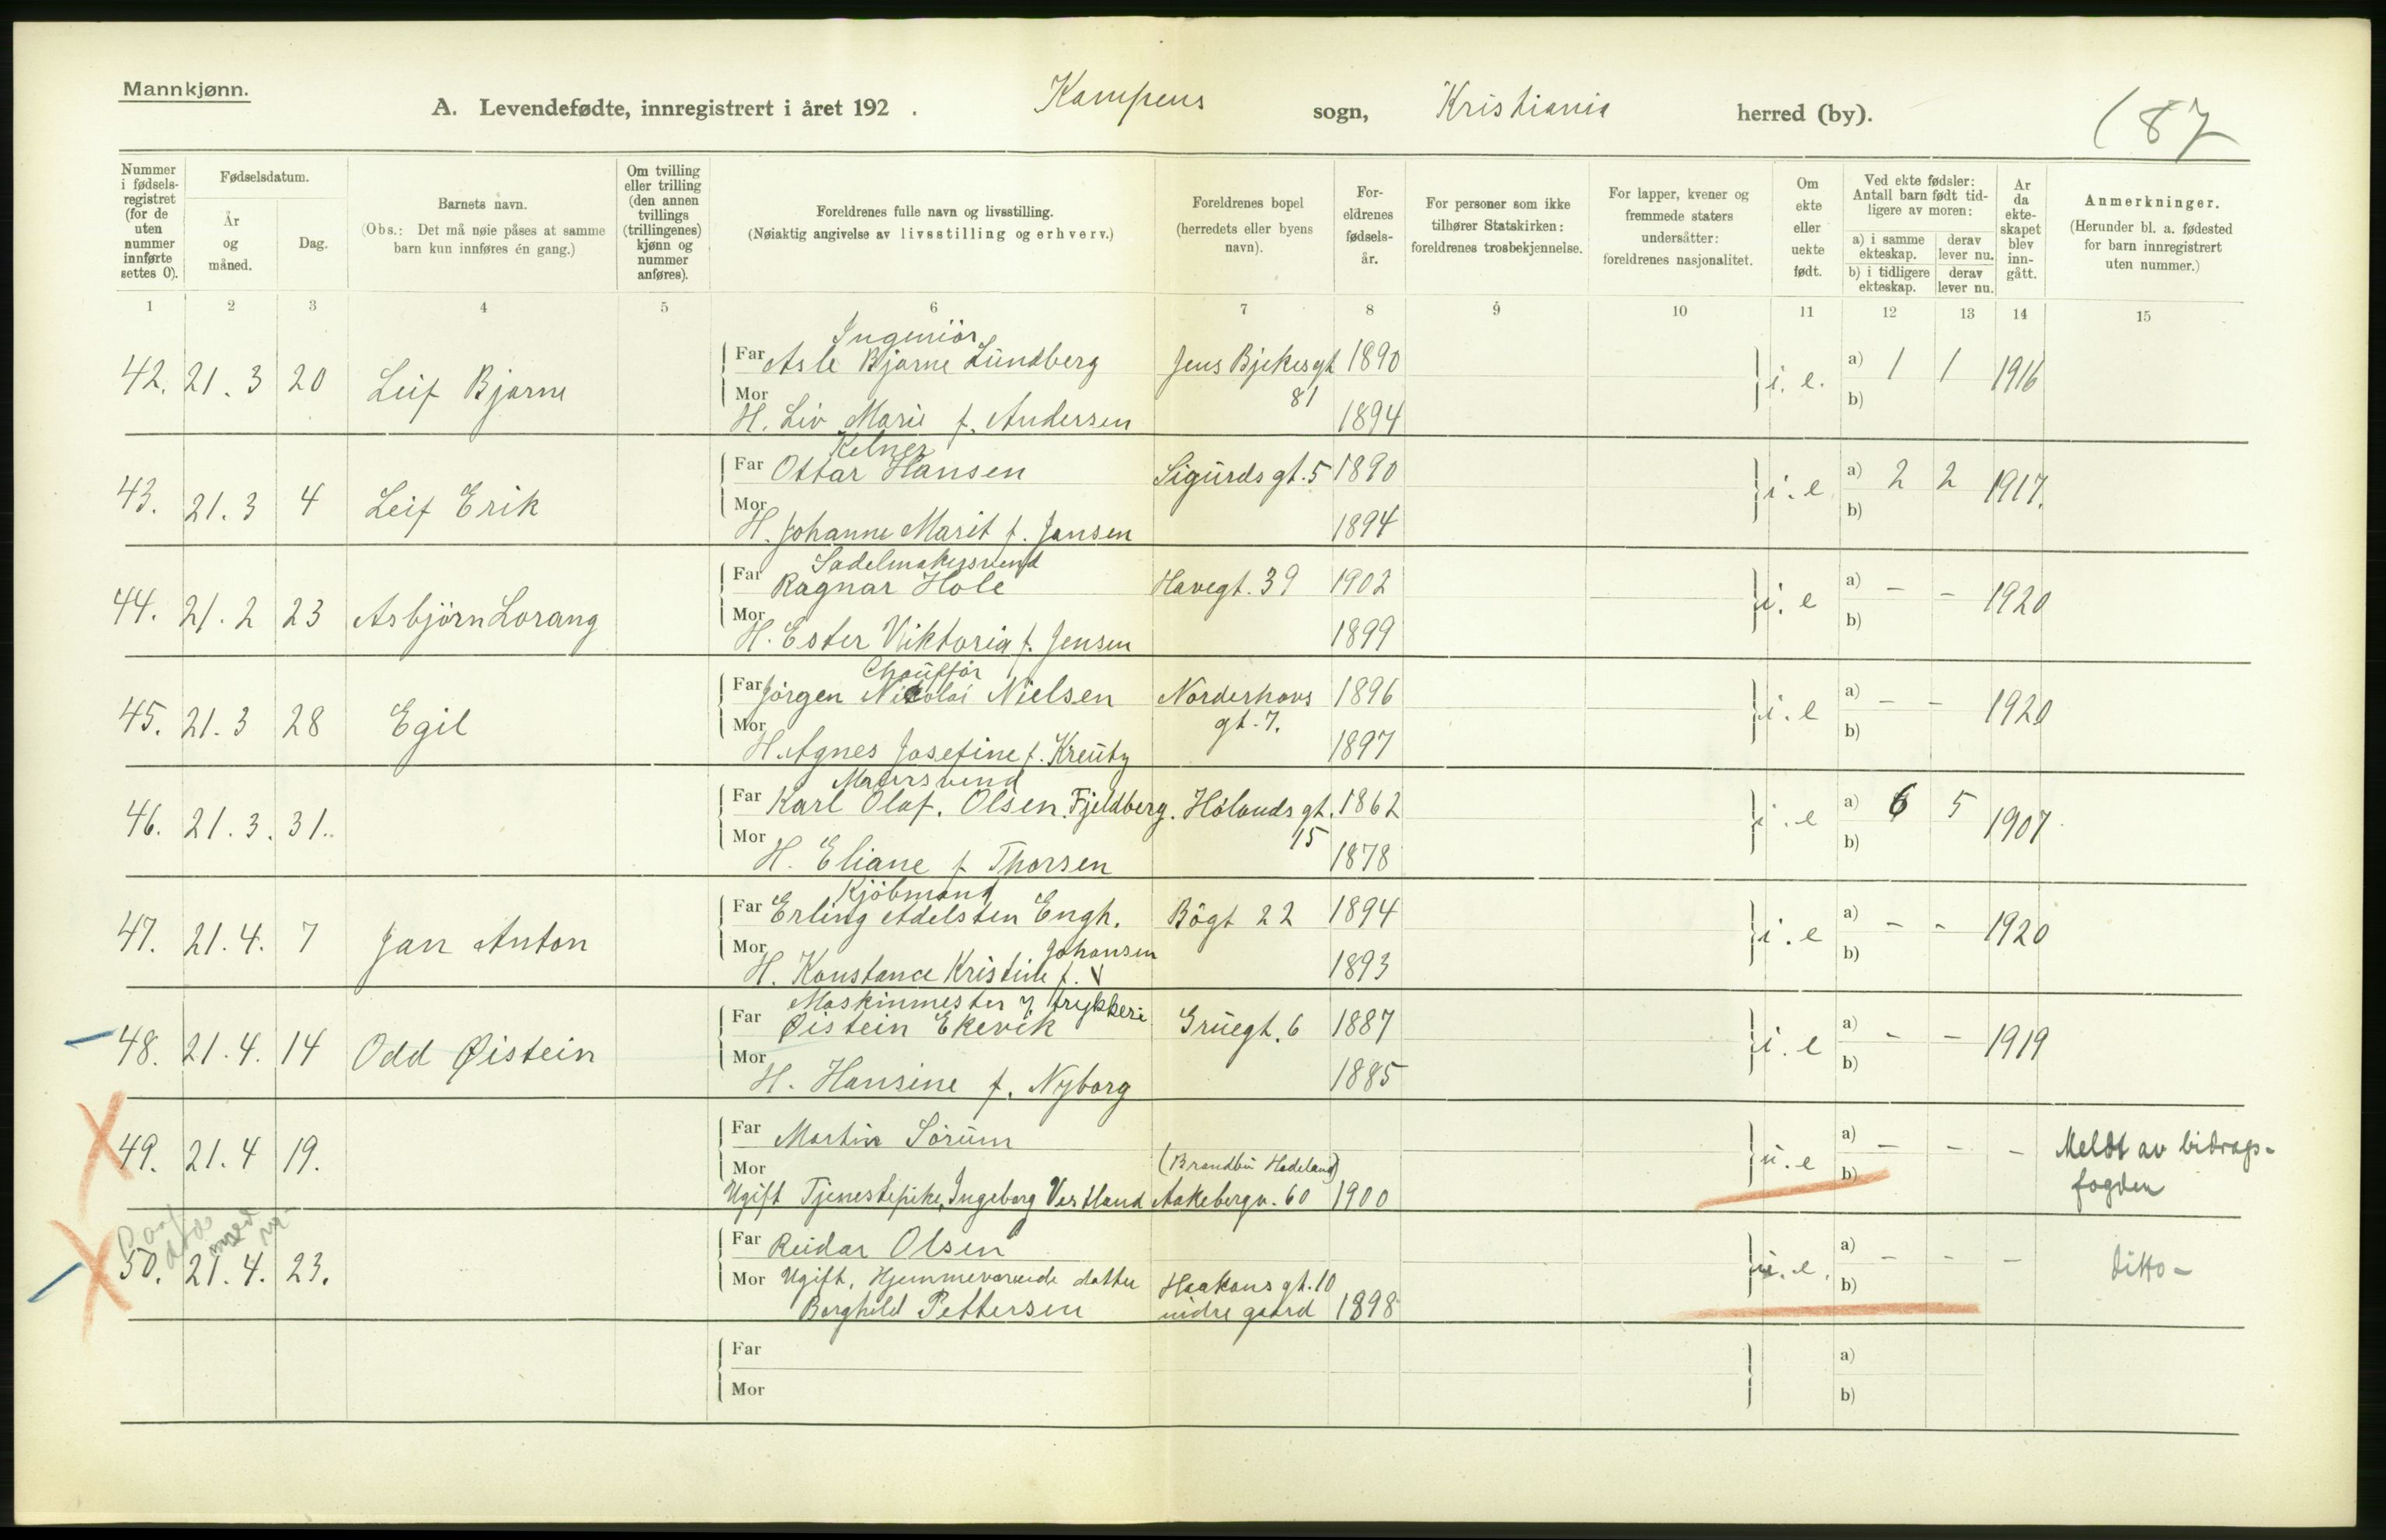 Mannkjønn.
A. Levendefødte, innregistrert i året 192 . Kampens sogn, Kristiania herred (by). (87
Nummer i fødsels-registret (for de uten nummer innførte settes 0).
Fødselsdatum.
År og måned.
Dag.
Barnets navn.
(Obs.: Det må nøie påses at samme barn kun innføres én gang.)
Om tvilling eller trilling (den annen tvillings (trillingenes) kjønn og nummer anføres).
Foreldrenes fulle navn og livsstilling.
(Nøiaktig angivelse av livsstilling og erhverv.)
Foreldrenes bopel (herredets eller byens navn).
For-eldrenes fødsels-år.
For personer som ikke tilhører Statskirken: foreldrenes trosbekjennelse.
For lapper, kvener og fremmede staters undersåtter: foreldrenes nasjonalitet.
Om ekte eller uekte født.
Ved ekte fødsler: Antall barn født tid-ligere av moren:
a) i samme ekteskap.
derav lever nu.
b) i tidligere ekteskap.
derav lever nu.
År da ekte-skapet blev inn-gått.
Anmerkninger.
(Herunder bl. a. fødested for barn innregistrert uten nummer.)
1 2 3 4 5 6 7 8 9 10 11 12 13 14 15
Ingeniör
42. 21.3 20 Leif Bjarne Far Asle Bjarne Lundberg Jens Bjelkes gt 1890 i. e. a) 1 1 1916
81
Mor H. Liv Marie f. Andersen 1894 b)
Kelner
43. 21.3 4 Leif Erik Far Ottar Hansen Sigurds gt. 5 1890 i. e a) 2 2 1917.
Mor H. Johanne Marit f. Jansen 1894 b)
Sadelmakersvend
44. 21.2 23 Asbjörn Lorang Far Ragnar Hole Havegt. 39 1902 i. e a) - - 1920
Mor H. Ester Viktoria f. Jensen 1899 b)
Chaufför
45. 21.3 28 Egil Far Jörgen Nicolai Nielsen Norderhovs 1896 i. e a) - - 1920
gt. 7.
Mor H. Agnes Josefine f. Kreutz 1897 b)
Malersvend
46. 21.3. 31. Far Karl Olaf. Olsen Fjeldberg. Hölands gt. 1862 i. e a) 6 5 1907
15
Mor H. Eliane f Thorsen 1878 b)
Kjöbmand
47. 21.4. 7 Jan Anton Far Erling Adelsten Engh. Bögt 22 1894 i. e a) - - 1920
Johansen
Mor H. Konstance Kristine f. V 1893 b)
Maskinmester i trykkeri
48. 21.4. 14 Odd Øistein Far Øistein Ekevik Gruegt. 6 1887 i. e a) - - 1919
Mor H. Hansine f. Nyborg 1885 b)
49. 21.4 19. Far Martin Sörum u. e a) - - - Meldt av bidrags-
fogden
(Brandbu Hadeland)
Mor Ugift Tjenestepike, Ingeborg Vestland Aakebergv. 60 1900 b)
med
50. 21.4. 23. Far Reidar Olsen u. e. a) - - - ditto -
Mor Ugift, Hjemmeværende datter Haakons gt. 10
Borghild Pettersen nidre gaard 1898 b)
Far a)
Mor b)